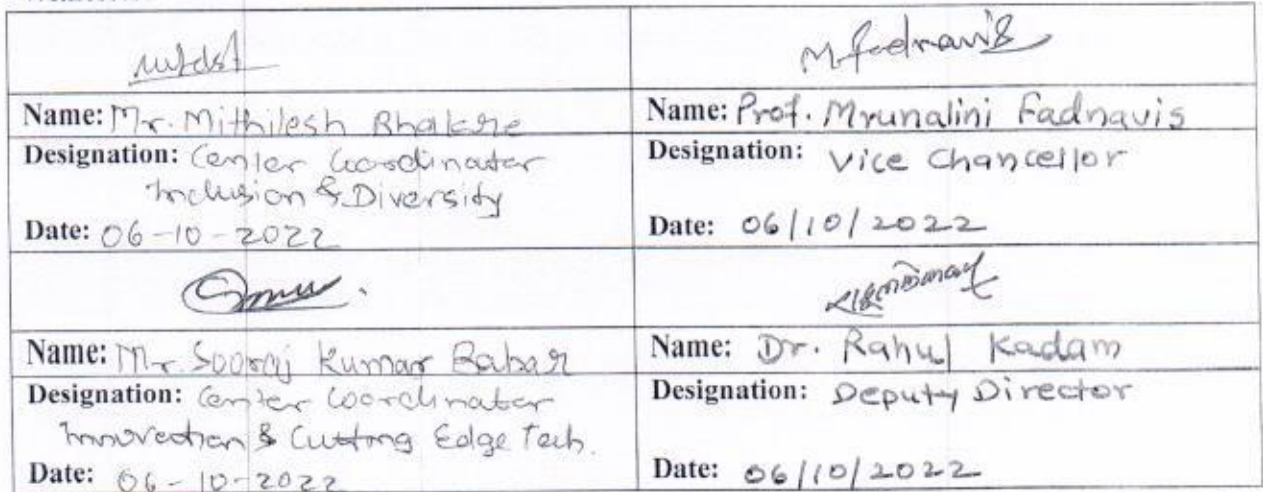 M. Fadnavis
Name: Mr. Mithilesh Bhakre
Name: Prof. Mrunalini Fadnavis
Designation: Center Coordinator
Inclusion & Diversity
Designation: Vice Chancellor
Date: 06-10-2022
Date: 06/10/2022
Name: Mr. Sooraj Kumar Babar
Name: Dr. Rahul Kadam
Designation: Center Coordinator
Innovation & Cutting Edge Tech.
Designation: Deputy Director
Date: 06-10-2022
Date: 06/10/2022